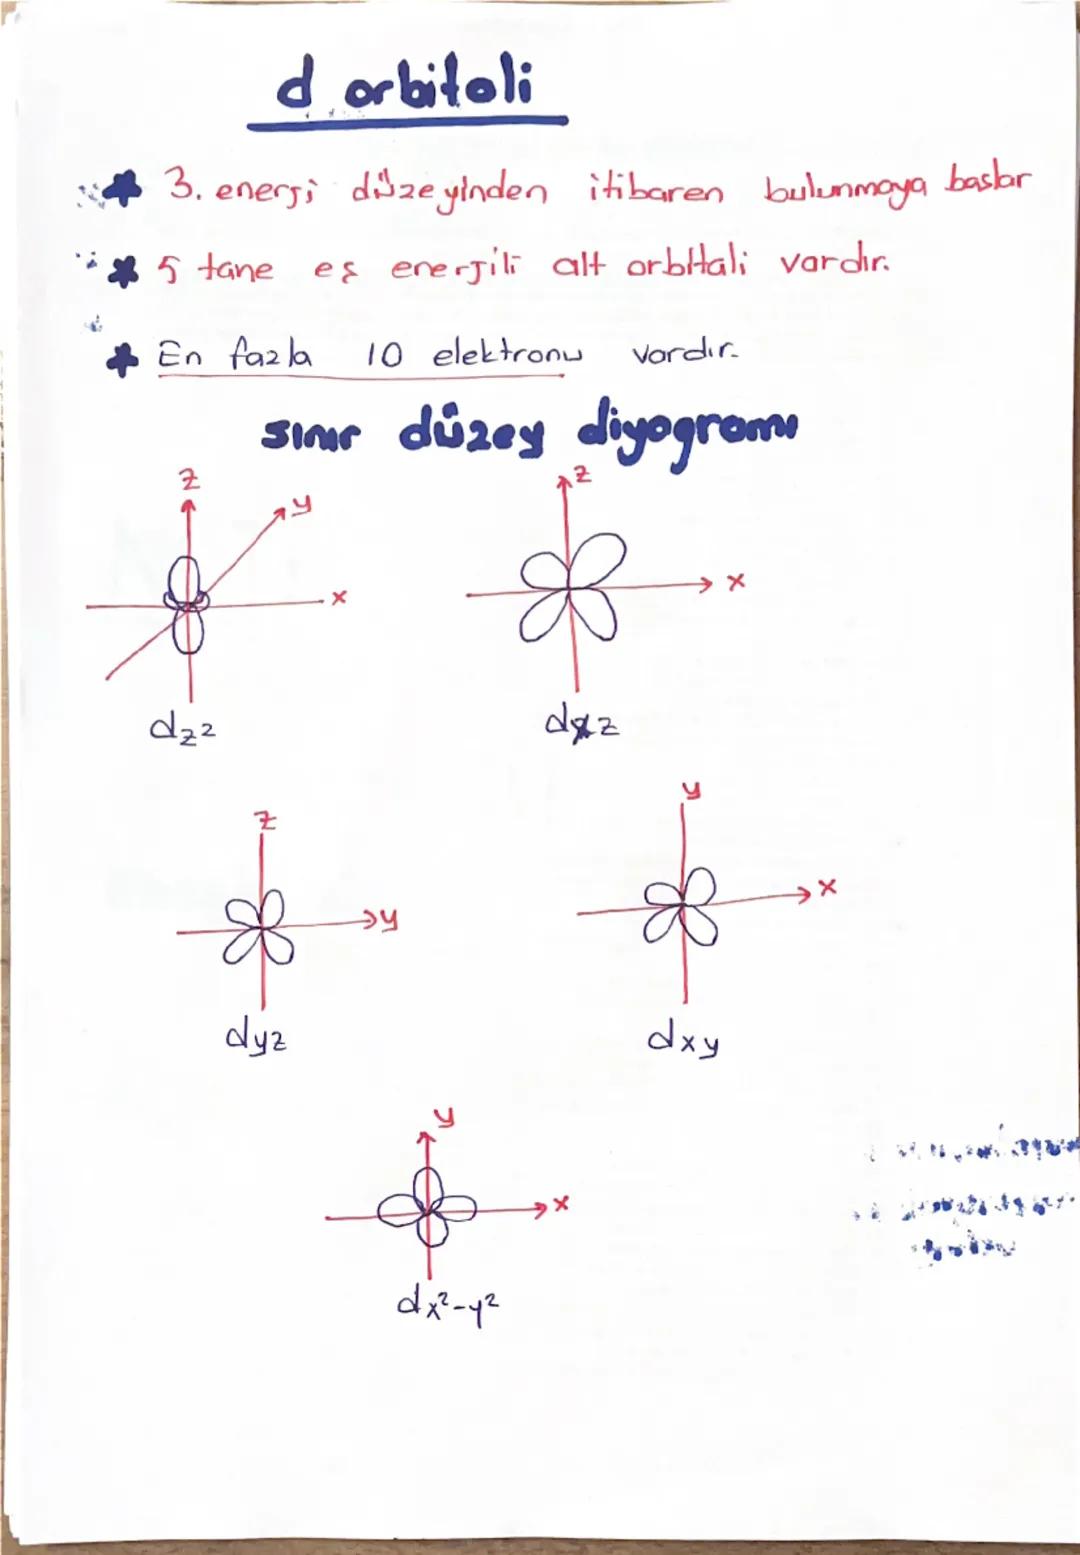 d orbitali
3. enerji düzeyinden itibaren bulunmaya başlar
5 tane eş enerjili alt orbitali vardır.
En fazla 10 elektronu vardır.
sınır düzey diyogramı
z
y
x
z
x
dz²
dxz
z
y
y
x
dyz
dxy
y
x
dx²-y²